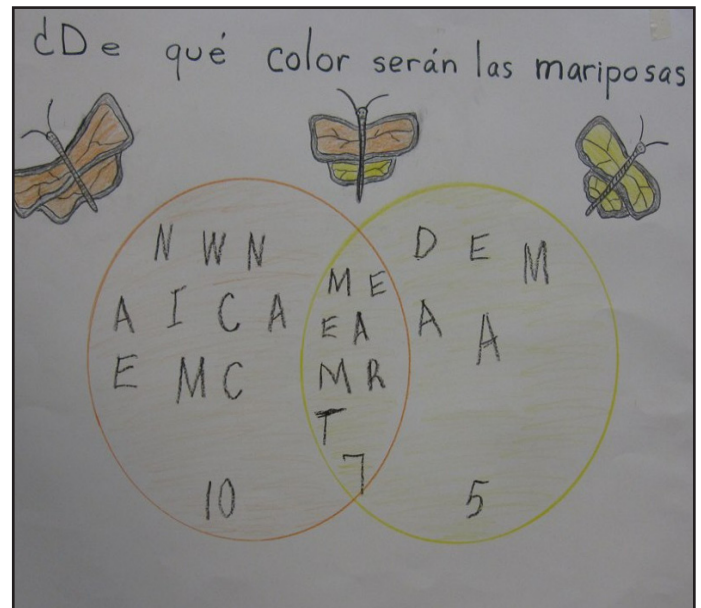 ¿De qué color serán las mariposas
N W N
A I C A
E M C
10
M E
E A
M R
T
7
D E M
A A
5